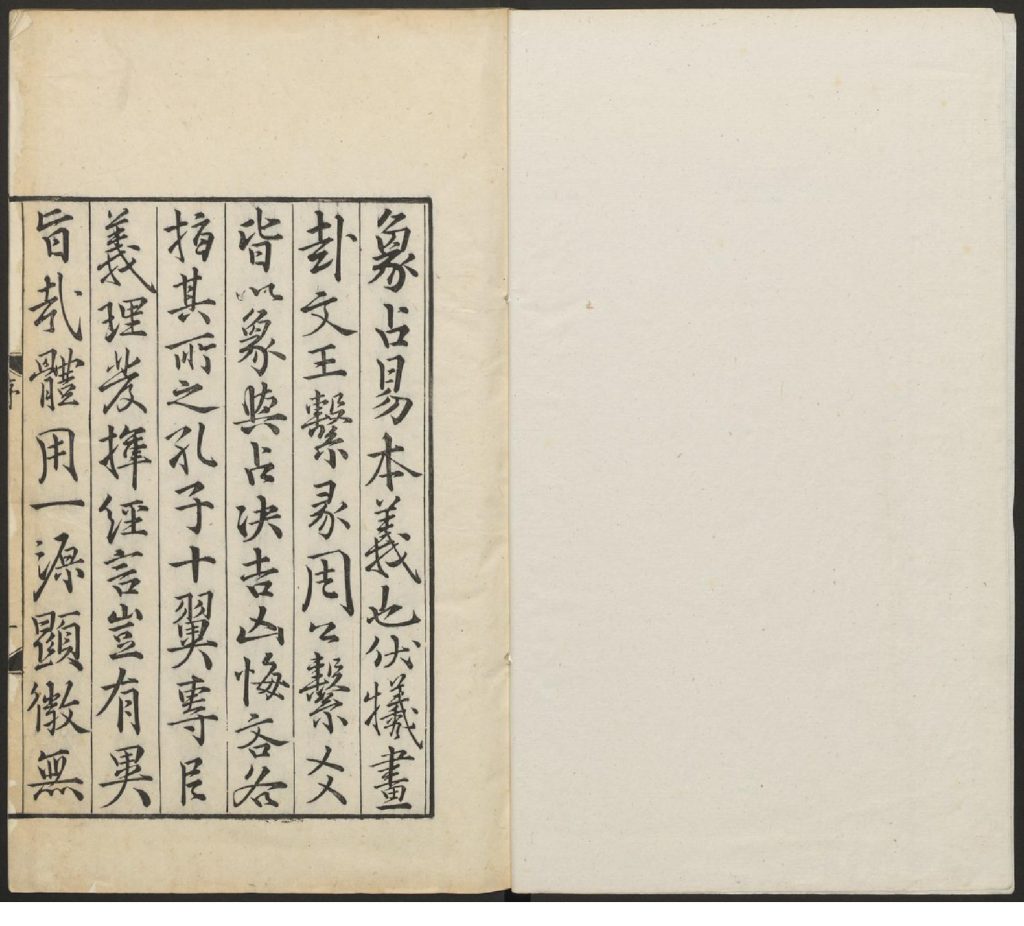 象占易本義也伏犧畫
卦文王繫彖周公繫爻
皆以象與占决吉凶悔吝各
指其所之孔子十翼專㠯
義理發揮經言豈有異
旨哉體用一源顯微無
序
一